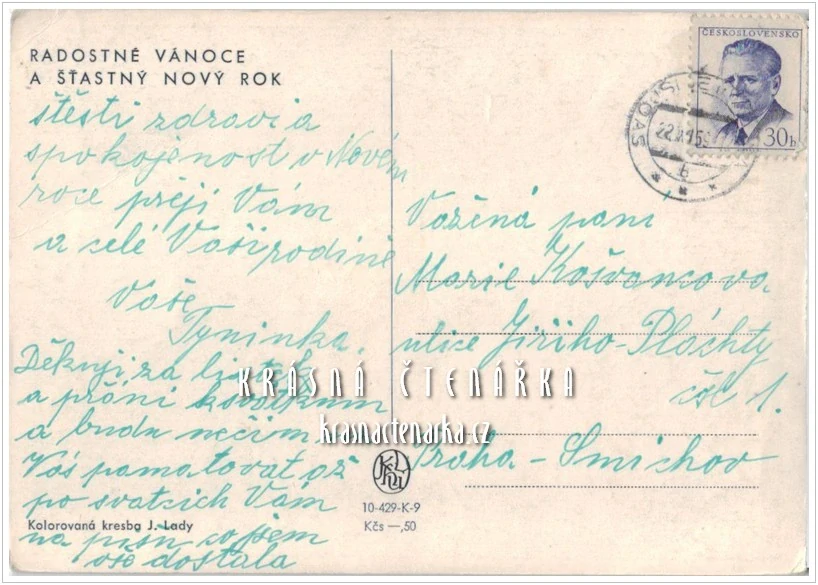 RADOSTNÉ VÁNOCE
A ŠŤASTNÝ NOVÝ ROK
štěstí zdraví a
spokojenost v Novém
roce přeji Vám
a celé Vaší rodině
Vaše
Tyninka.
Děkuji za lístek
a přání k svátkum
a budu nečim
Vás pamatovat až
po svatcich Vám
na píšu co jsem
vše dostala
Kolorovaná kresba J. Lady
ČESKOSLOVENSKO
30h
22.XI.5
6
Vážená paní
Marie
ulice Jiřího-Pláchty
čsl 1.
Praha-Smíchov
KRÁSNÁ ČTENÁŘKA
krasnactenarka.cz
10-429-K-9
Kčs —,50